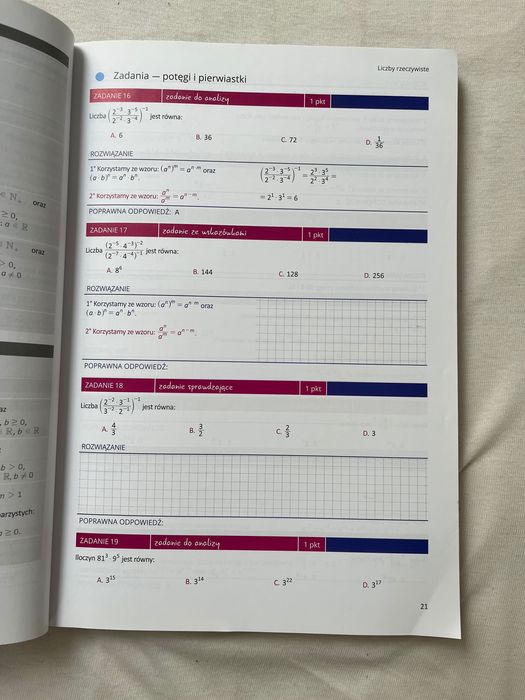 Liczby rzeczywiste
Zadania — potęgi i pierwiastki
ZADANIE 16 zadanie do analizy 1 pkt
Liczba (2⁻³ · 3⁻⁵ / 2⁻² · 3⁻⁴)⁻¹ jest równa:
A. 6 B. 36 C. 72 D. 1/36
ROZWIĄZANIE
1° Korzystamy ze wzoru: (aⁿ)ᵐ = aⁿ ᐧ ᵐ oraz
(a · b)ⁿ = aⁿ · bⁿ.
(2⁻³ · 3⁻⁵ / 2⁻² · 3⁻⁴)⁻¹ = 2³ · 3⁵ / 2² · 3⁴ =
2° Korzystamy ze wzoru: aⁿ/aᵐ = aⁿ⁻ᵐ.
= 2¹ · 3¹ = 6
POPRAWNA ODPOWIEDŹ: A
ZADANIE 17 zadanie ze wskazówkami 1 pkt
Liczba (2⁻⁵ · 4⁻³)⁻² / (2⁻⁷ · 4⁻⁴)⁻¹ jest równa:
A. 8⁶ B. 144 C. 128 D. 256
ROZWIĄZANIE
1° Korzystamy ze wzoru: (aⁿ)ᵐ = aⁿ ᐧ ᵐ oraz
(a · b)ⁿ = aⁿ · bⁿ.
2° Korzystamy ze wzoru: aⁿ/aᵐ = aⁿ⁻ᵐ.
POPRAWNA ODPOWIEDŹ:
ZADANIE 18 zadanie sprawdzające 1 pkt
Liczba (2⁻² · 3⁻¹ / 3⁻² · 2⁻¹)⁻¹ jest równa:
A. 4/3 B. 3/2 C. 2/3 D. 3
ROZWIĄZANIE
POPRAWNA ODPOWIEDŹ:
ZADANIE 19 zadanie do analizy 1 pkt
Iloczyn 81³ · 9⁵ jest równy:
A. 3¹⁵ B. 3¹⁴ C. 3²² D. 3¹⁷
21
oraz
≥ 0,
oraz
> 0,
a ≠ 0
b ≥ 0,
b > 0,
ℝ, b ≠ 0
n > 1
parzystych:
a ≥ 0.